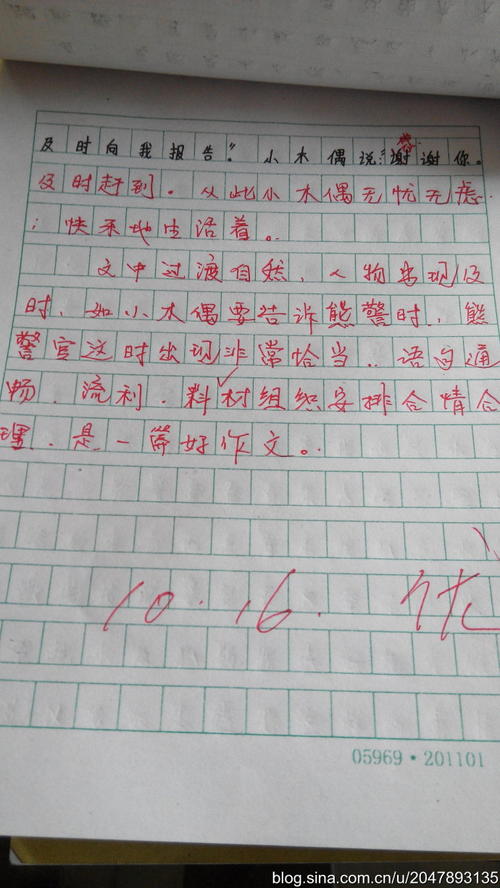 及时向我报告”。小木偶说：“谢谢你。
及时赶到。从此小木偶无忧无虑
；快乐地生活着。
文中过渡自然，人物出现及
时、如小木偶要告诉熊警时，熊
警官这时出现非常恰当。语句通
畅、流利、料材组织安排合情合
理、是一篇好作文。
10.16. 优
05969·201101
blog.sina.com.cn/u/2047893135